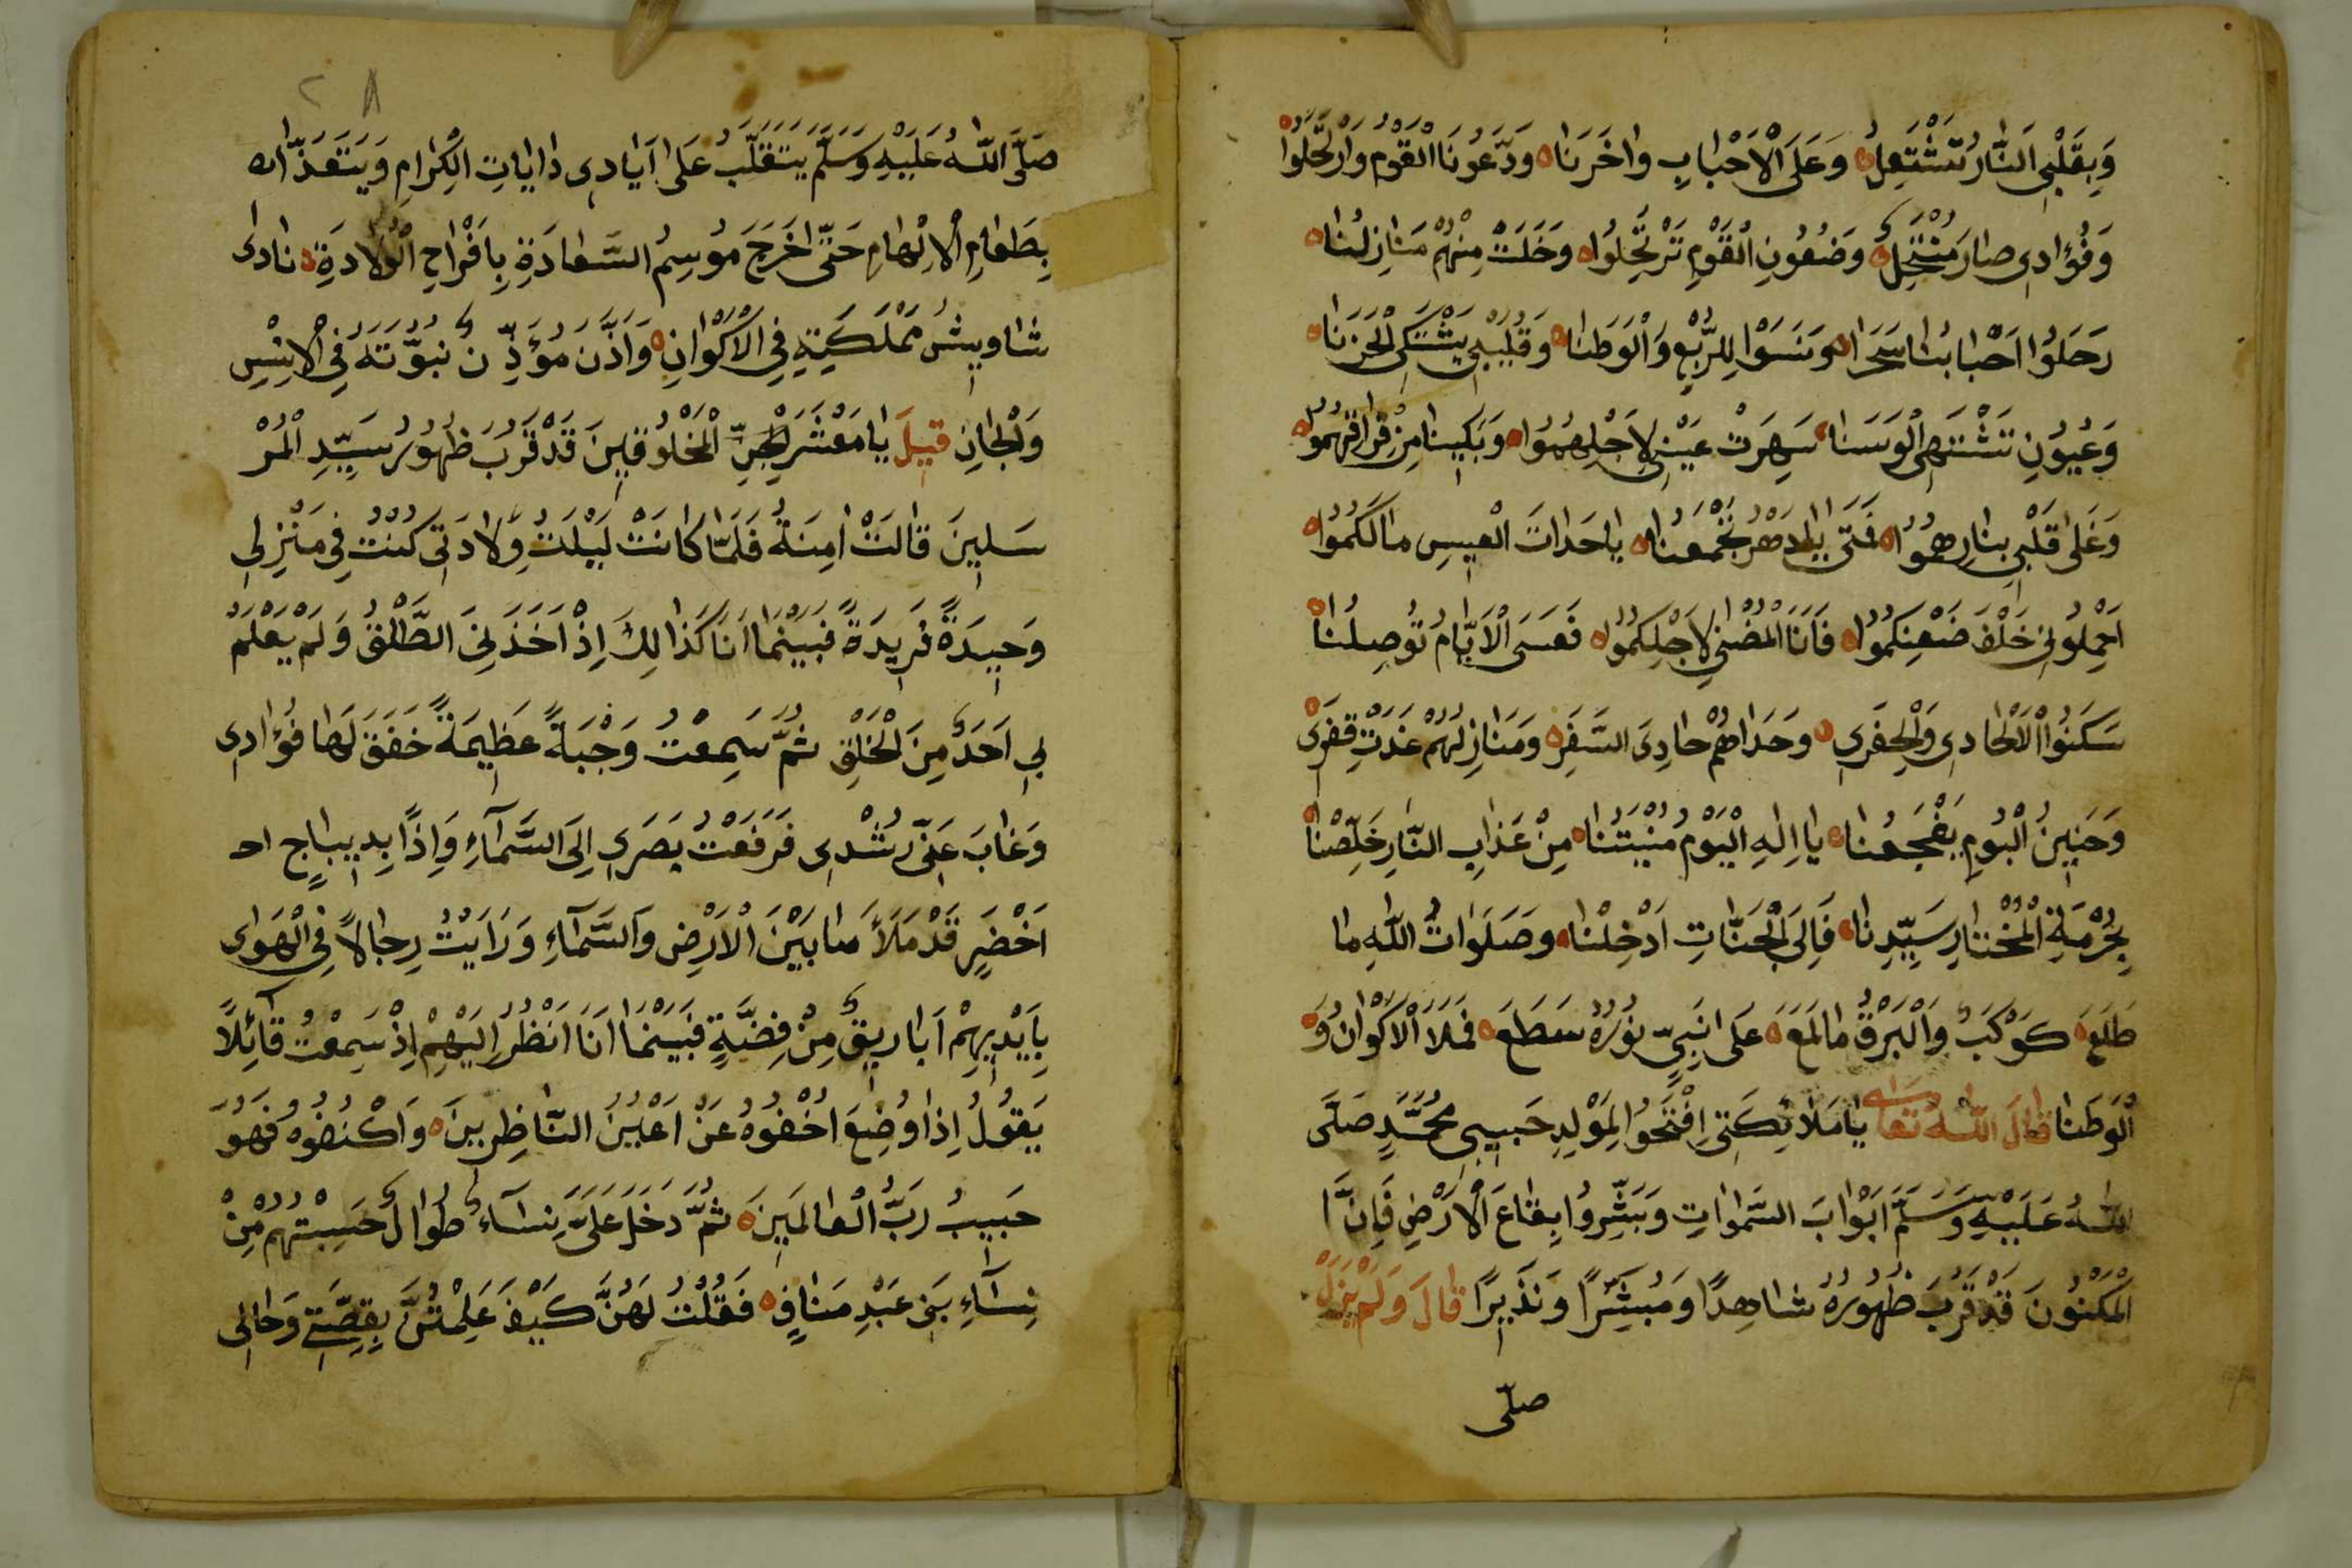 وَبِقَلْبِي النَّارُ تَشْتَعِلُ ه وَعَلَى الْاَحْبَابِ وَاحَزَنَا ه وَدَّعُونَا الْقَوْمُ وَارْتَحَلُوا ه
وَفُؤَادِي صَارَ مُنْتَحِلٌ ه وَضُعُونِ الْقَوْمِ تَرْتَحِلُوا ه وَخَلَتْ مِنْهُمْ مَنَازِلُنَا ه
رَحَلُوا اَحْبَابُنَا سَحَرًا ه وَنَسَوْا لِلرَّبْعِ وَالْوَطَنَا ه وَقَلْبِي يَشْتَكِي الْحَزَنَا ه
وَعُيُونِ تَشْتَهِي الْوَسَنَا ه سَهِرَتْ عَيْنِي لِاَجْلِهِمُوا ه وَبَكَيْنَا مِنْ فِرَاقِهِمُوا ه
وَغَلَى قَلْبِي بِنَارِهِمُوا ه فَمَتَى يَا دَهْرُ تَجْمَعُنَا ه يَا حَدَاتَ الْعِيسِ مَا لَكُمُوا ه
اَحْمِلُونِي خَلْفَ ضَعْنِكُمُوا ه فَاَنَا الْمُضْنَى لِاَجْلِكُمُوا ه فَعَسَى الْاَيَّامُ تُوصِلُنَا ه
سَكَنُوا الْاَلْحَادِي وَالْحِفَرِي ه وَحَدَاهُمْ حَادِيَ السَّفَرِ ه وَمَنَازِلُهُمْ غَدَتْ قَفَرَى
وَحَنِينُ الْبُومِ يَفْجَعُنَا ه يَا اِلَهِ الْيَوْمَ مُنْيَتُنَا ه مِنْ عَذَابِ النَّارِ خَلِّصْنَا ه
بِحُرْمَةِ الْمُخْتَارِ سَيِّدِنَا ه فَاِلَى الْجَنَّاتِ اَدْخِلْنَا ه وَصَلَوَاتُ اللّٰهِ مَا
طَلَعَ ه كَوْكَبٌ وَالْبَرْقُ مَا لَمَعَ ه عَلَى نَبِيٍّ نُورُهُ سَطَعَ ه فَمَلَا الْاَكْوَانُ وَ ه
الْوَطَنَا قَالَ اللّٰهُ تَعَالَى يَا مَلَائِكَتِي اِفْتَحُوا لِمَوْلِدِ حَبِيبِي مُحَمَّدٍ صَلَّى
اللّٰهُ عَلَيْهِ وَسَلَّمَ اَبْوَابَ السَّمَوَاتِ وَبَشِّرُوا بِقَاعَ الْاَرْضِ فَاِنَّ
الْمَكْنُونَ قَدْ قَرُبَ ظُهُورُهُ شَاهِدًا وَمُبَشِّرًا وَنَذِيرًا قَالَ وَلَمْ يَزَلْ
صلّى
٢٨
صَلَّى اللّٰهُ عَلَيْهِ وَسَلَّمَ يَتَقَلَّبُ عَلَى اَيَادِي دَايَاتِ الْكِرَامِ وَيَتَغَذَّاه
بِطَعَامِ الْاِلْهَامِ حَتَّى اخَرَجَ مُوسِمُ السَّعَادَةِ بِاَفْرَاحِ الْوِلَادَةِ ه نَادَى
شَاوِيشُ مَمْلَكَتِهِ فِي الْاَكْوَانِ ه وَاَذَّنَ مُؤَذِّنٌ نُبُوَّتَهُ فِي الْاِنْسِ
وَالْجَانِ قِيلَ يَا مَعْشَرَ الْجِنِّ الْمَخْلُوقِينَ قَدْ قَرُبَ ظُهُورُ سَيِّدِ الْمُرْ
سَلِينَ قَالَتْ اٰمِنَةُ فَلَمَّا كَانَتْ لَيْلَتُ وِلَادَتِي كُنْتُ فِي مَنْزِلِي
وَحِيدَةً فَرِيدَةً فَبَيْنَمَا اَنَا كَذَالِكَ اِذْ اَخَذَنِي الطَّلْقُ وَلَمْ يَعْلَمْ
بِي اَحَدٌ مِنَ الْخَلْقِ ثُمَّ سَمِعْتُ وَجْبَةً عَظِيمَةً خَفَقَ لَهَا فُؤَادِي
وَغَابَ عَنِّي رُشْدِي فَرَفَعْتُ بَصَرِي اِلَى السَّمَآءِ وَاِذًا بِدِيبَاجٍ اح
اَخْضَرٍ قَدْ مَلَأَ مَا بَيْنَ الْاَرْضِ وَالسَّمَآءِ وَرَاَيْتُ رِجَالًا فِي الْهَوَاى
بِاَيْدِيهِمْ اَبَارِيقٌ مِنْ فِضَّةٍ فَبَيْنَمَا اَنَا اَنْظُرُ اِلَيْهِمْ اِذْ سَمِعْتُ قَآئِلًا
يَقُولُ اِذَا وُضِعَ اخْفُوهُ عَنْ اَعْيُنِ النَّاظِرِينَ ه وَاكْنُفُوهُ فَهُوَ
حَبِيبُ رَبُّ الْعَالَمِينَ ه ثُمَّ دَخَلَ عَلَيَّ نِسَآءٌ طُوَالٌ حَسِبْتُهُمْ مِنْ
نِسَآءِ بَنِي عَبْدِ مَنَافٍ ه فَقُلْتُ لَهُنَّ كَيْفَ عَلِمْتُنَّ بِقِصَّتِي وَحَالِي